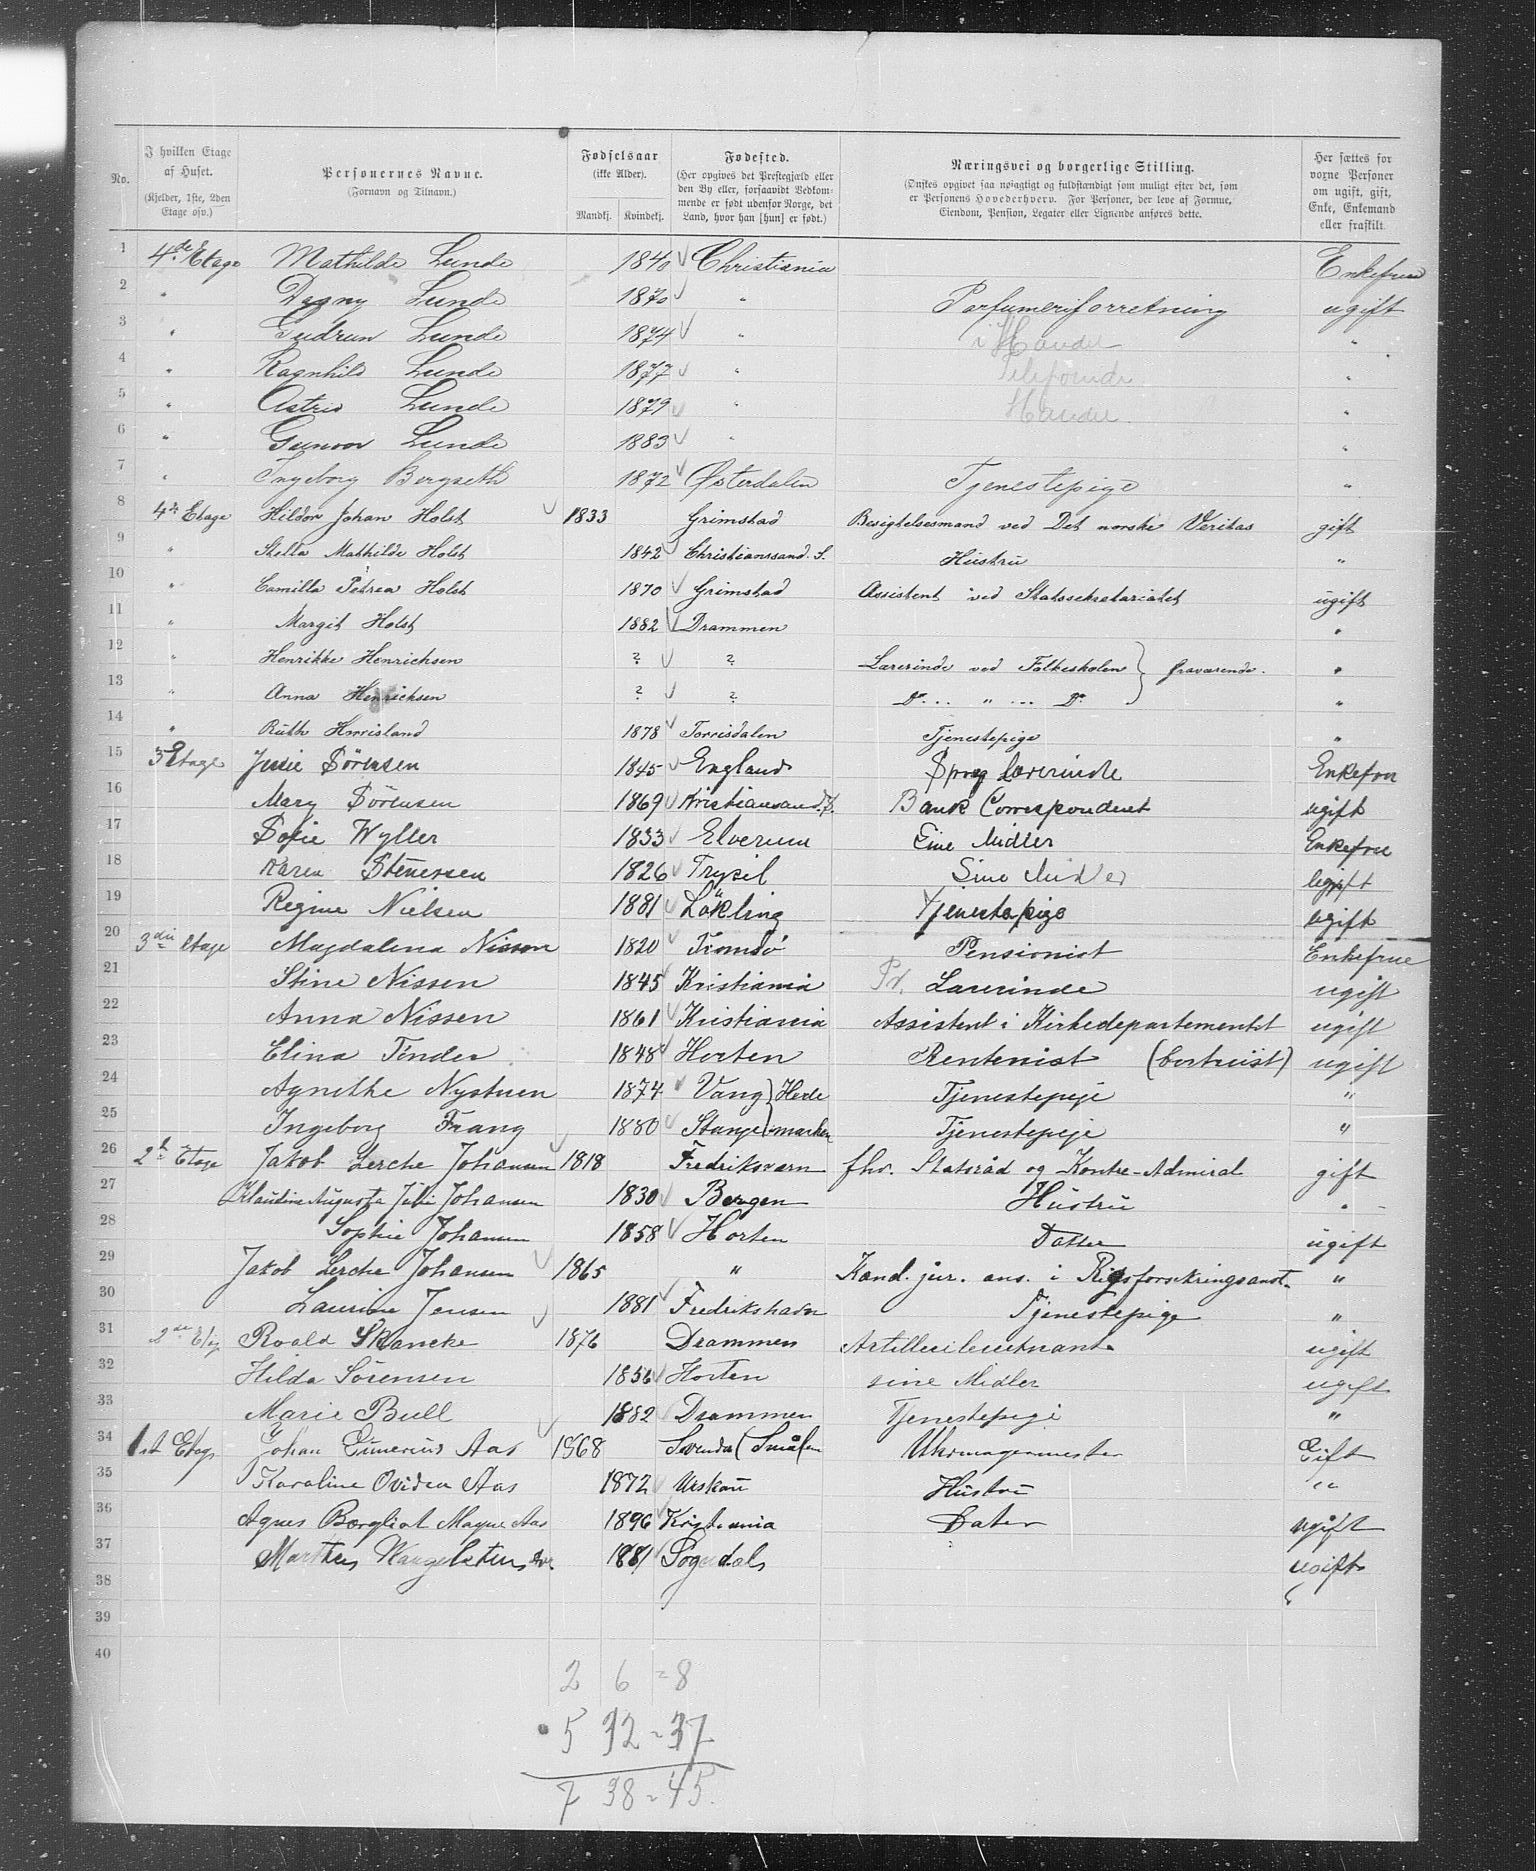 No. | I hvilken Etage af Huset. (Kjelder, 1ste, 2den Etage osv.) | Personernes Navne. (Fornavn og Tilnavn.) | Fødselsaar (ikke Alder). Mandkj. Kvindekj. | Fødested. (Her opgives det Prestegjæld eller den By eller, forsaavidt Vedkommende er født udenfor Norge, det Land, hvor han [hun] er født.) | Næringsvei og borgerlige Stilling. (Ønskes opgivet saa nøiagtigt og fuldstændigt som muligt efter det, som er Personens Hovederhverv. For Personer, der leve af Formue, Eiendom, Pension, Legater eller Lignende anføres dette. | Her sættes for vorne Personer om ugift, gift, Enke, Enkemand eller fraskilt.
1 4de Etage Mathilde Lunde 1840 Christiania Enkefrue
2 " Dagny Lunde 1870 " Parfumeriforretning ugift
3 " Gudrun Lunde 1874 " i Handel "
4 " Ragnhild Lunde 1877 " "
5 " Astrid Lunde 1879 " Handel "
6 " Gunvor Lunde 1883 " "
7 " Ingeborg Bergseth 1872 Østerdalen Tjenestepige "
8 4de Etage Hildor Johan Holst 1833 Grimstad Besigtelsesmand ved Det norske Veritas gift
9 " Stella Mathilde Holst 1842 Christianssand. S. Hustru "
10 " Camilla Petrea Holst 1870 Grimstad Assistent ved Statssekretariatet ugift
11 " Margit Holst 1882 Drammen "
12 " Henrikke Henrichsen ? ? Lærerinde ved Folkeskolen } fraværende. "
13 " Anna Henrichsen ? ? Do ... " ... Do "
14 " Ruth 1878 Torrisdalen Tjenestepige "
15 3 Etage Jessie Sörensen 1845 England Sprog Lærerinde Enkefru
16 Mary Sörensen 1869 Kristiansand. S. Bank Correspondent ugift
17 Sofie Wyller 1833 Elverum Eine Midler Enkefru
18 Karen Stenersen 1826 Trysil Sine Midler ugift
19 Regine Nielsen 1881 Tjenestepige ugift
20 3die Etage Magdalena Nissen 1820 Tromsö Pensionist Enkefrue
21 Stine Nissen 1845 Kristiania Pr. Lærerinde ugift
22 Anna Nissen 1861 Kristiania Assistent i Kirkedepartementet ugift
23 Elina Tender 1848 Horten Rentenist (bortreist) ugift
24 Agnethe Nystuen 1874 Vang } Hede Tjenestepeje "
25 Ingeborg Frang 1880 Stange } marken Tjenestepeje "
26 2den Etage Jakob Lerche Johansen 1818 Fredriksværn fhv. Statsråd og Kontre-Admiral gift
27 Klaudine Augusta Julie Johansen 1830 Bergen Hustru "
28 Sophie Johansen 1858 Horten Datter ugift
29 Jakob Lerche Johansen 1865 " Kand. jur. ans. i Rigsforsikringsanst. "
30 Laurine Jensen 1881 Fredrikshavn Tjenestepige "
31 2den Etg Roald Skancke 1876 Drammen Artilleriløitnant ugift
32 Hilda Sørensen 1856 Horten sine Midler ugift
33 Marie Bull 1882 Drammen Tjenestepige "
34 1st Etage Johan Aas 1868 (Smålen Uhrmagermester Gift
35 Karoline Ovidea Aas 1872 Urskou Hustru "
36 Agnes Borgliot Magne Aas 1896 Kristiania Dater ugift
37 Marthea 1881 Sogndal ugift
38
39
40
2 6 = 8
5 32 = 37
7 38 = 45.